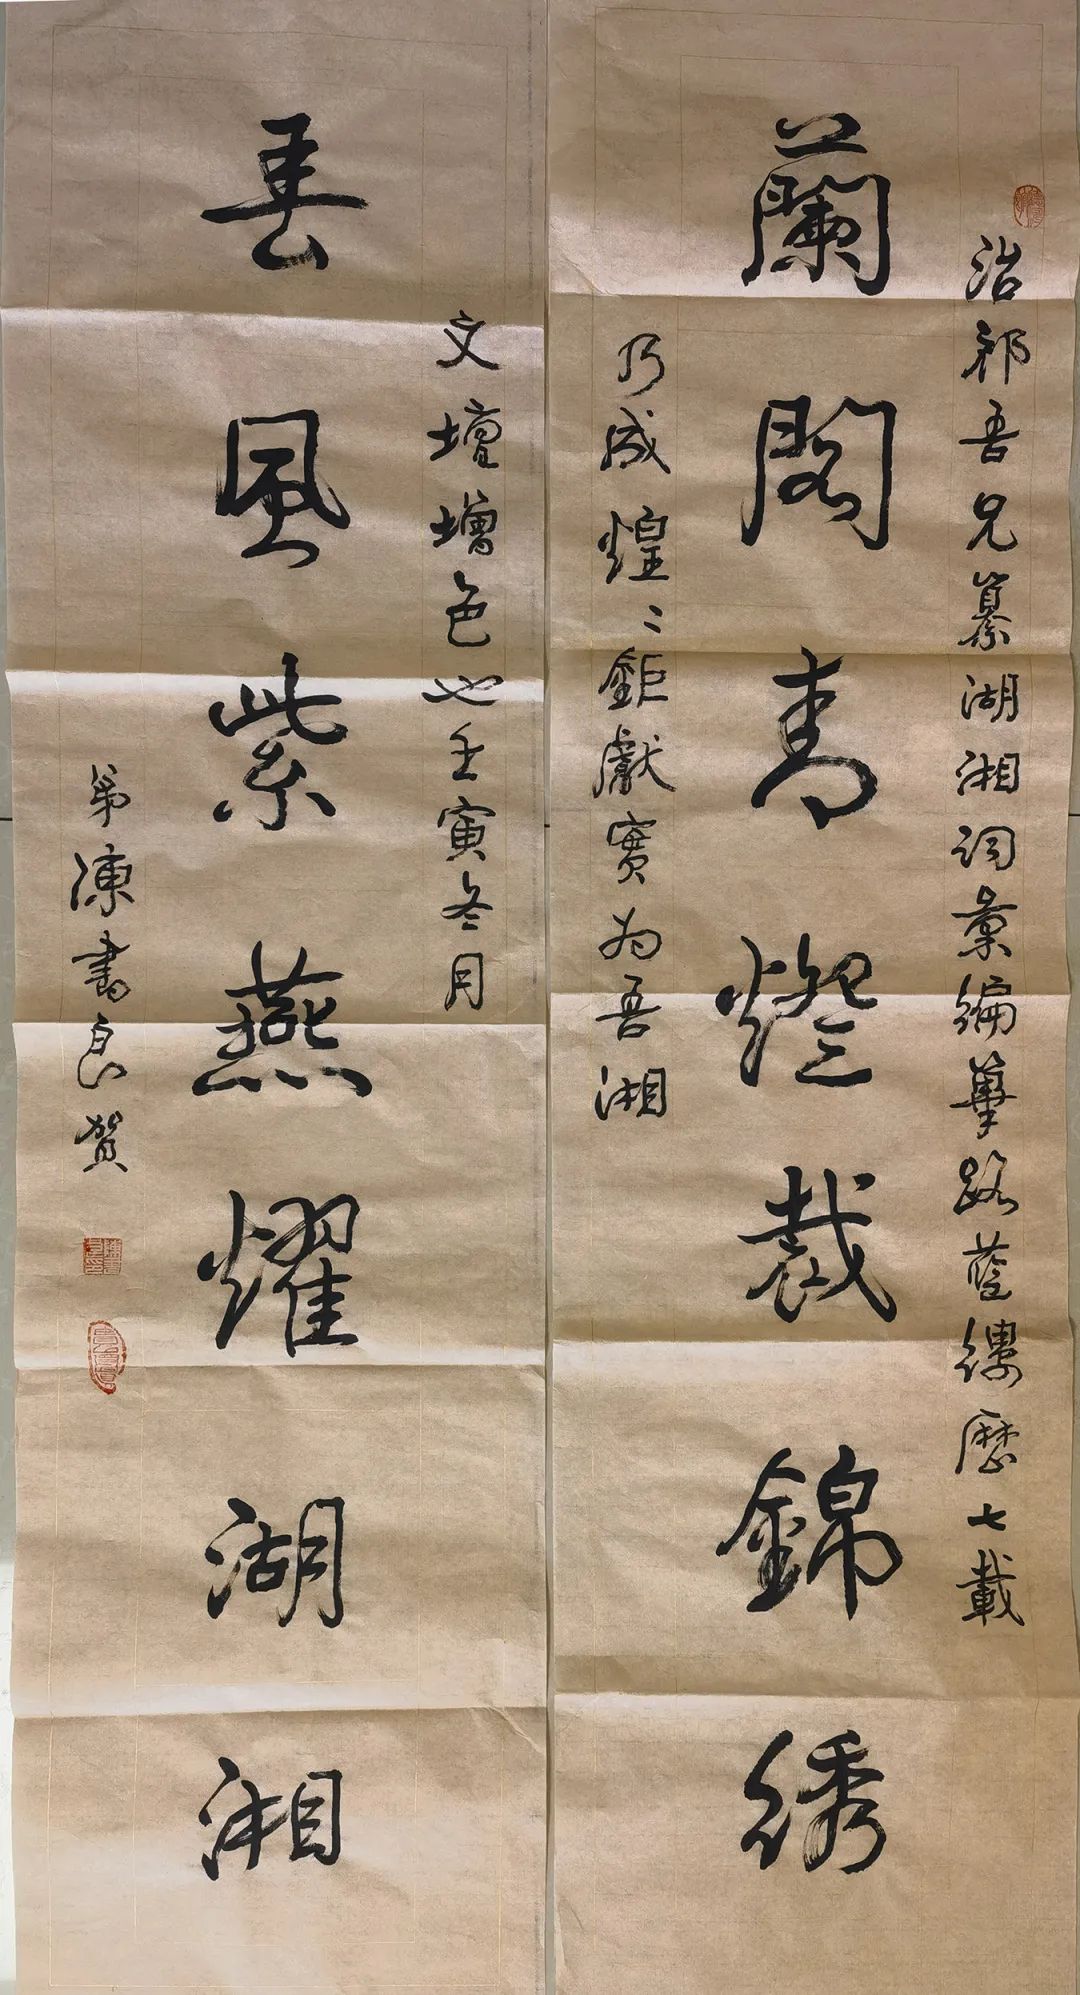 治祁吾兄纂湖湘词彙编篳路蓝缕歷七載
蘭閣青燈裁錦绣
乃成煌〻鉅獻實为吾湘
文壇增色也壬寅冬月
春風紫燕耀湖湘
弟陳書良賀